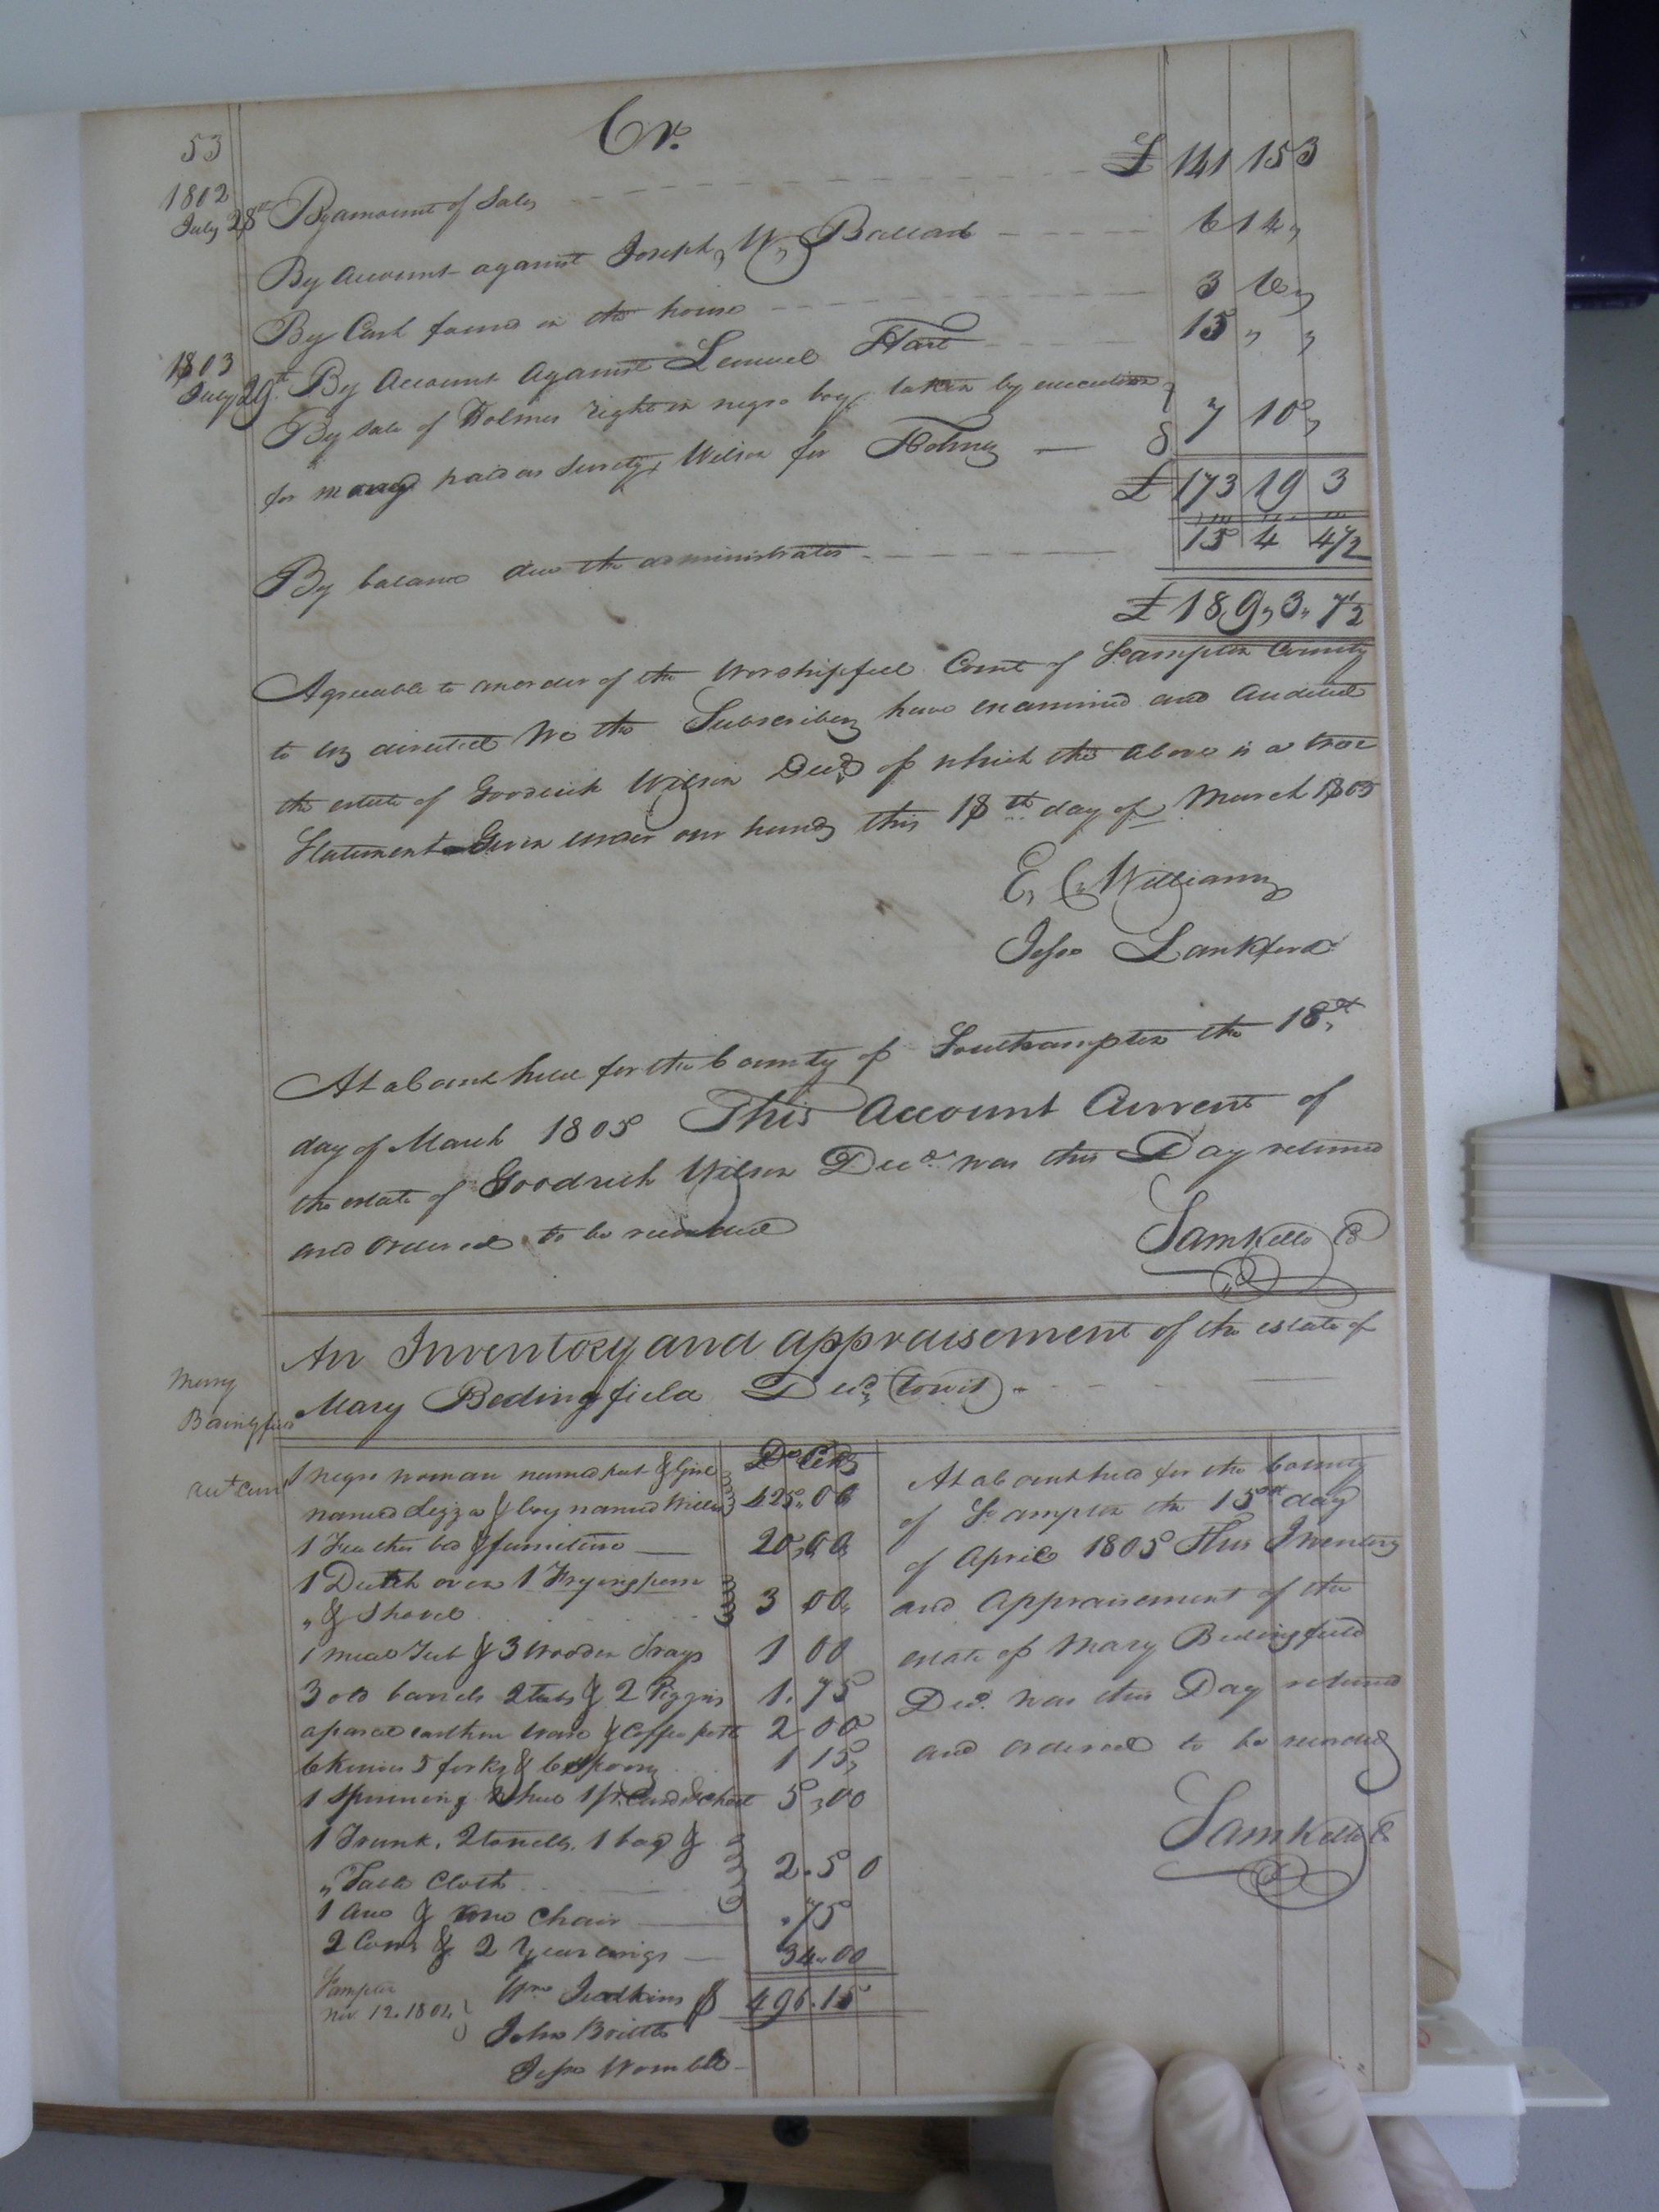 53
Cr.
1802
July 28th By amount of Sales £ 141 15 3
By Account against Joseph, W, Ballard 6 14 "
By Cash found in the house 3 " "
1803
July 29th By Account Against Lemuel Hart 15 " "
By Sale of Holmes right in negro boy taken by execution
for money paid as Surety, Wilson for Holmes 7 10 "
£ 173 19 3
By balance due the administrator 15 4 4 1/2
£ 189, 3, 7 1/2
Agreeable to an order of the Worshipfull Court of So.ampton County
to us directed We the Subscribers have examined and Audited
the estate of Goodrich Wilson Decd. of which the above is a true
Statement Given under our hands this 18th day of March 1805
E, C, Williams
Jesse Lankford
At a Court held for the County of Southampton the 18th
day of March 1805 This Account Current of
the estate of Goodrich Wilson Decd. was this Day returned
and Ordered to be recorded
Sam Kello C
An Inventory and appraisement of the estate of
Mary Bedingfield Decd, (towit)
Merry
Act Curr
1 negro woman named pat & Girl
named Lizza & boy named Willis
1 Feather bed & furniture
1 Dutch oven 1 Frying pann
" & Shovel
1 meal Tub & 3 Wooden Trays
3 old barrels 2 tubs & 2 Piggins
a parcel earthen Ware & Coffee pott
6 knives 5 forks & 6 Spoons
1 Spinning Wheel 1 pr. Cards & chest
1 Trunk, 2 towells, 1 bag &
" Table Cloth
1 & one Chair
2 Cows & 2 Yearlings
So.ampton
Nov. 12. 1804
Wm Judkins
John Britt
Jesse Womble
Do Cts
425,,00
20,,00
3 00,,
1 00
1. 75
2 00
1 15,
5,00
2.50
.75
34.00
$ 496.15
At a Court held for the County
of So.ampton the 15th day
of April 1805 This Inventory
and Appraisement of the
estate of Mary Bedingfield
Decd. was this Day returned
and ordered to be recorded
Sam Kello C